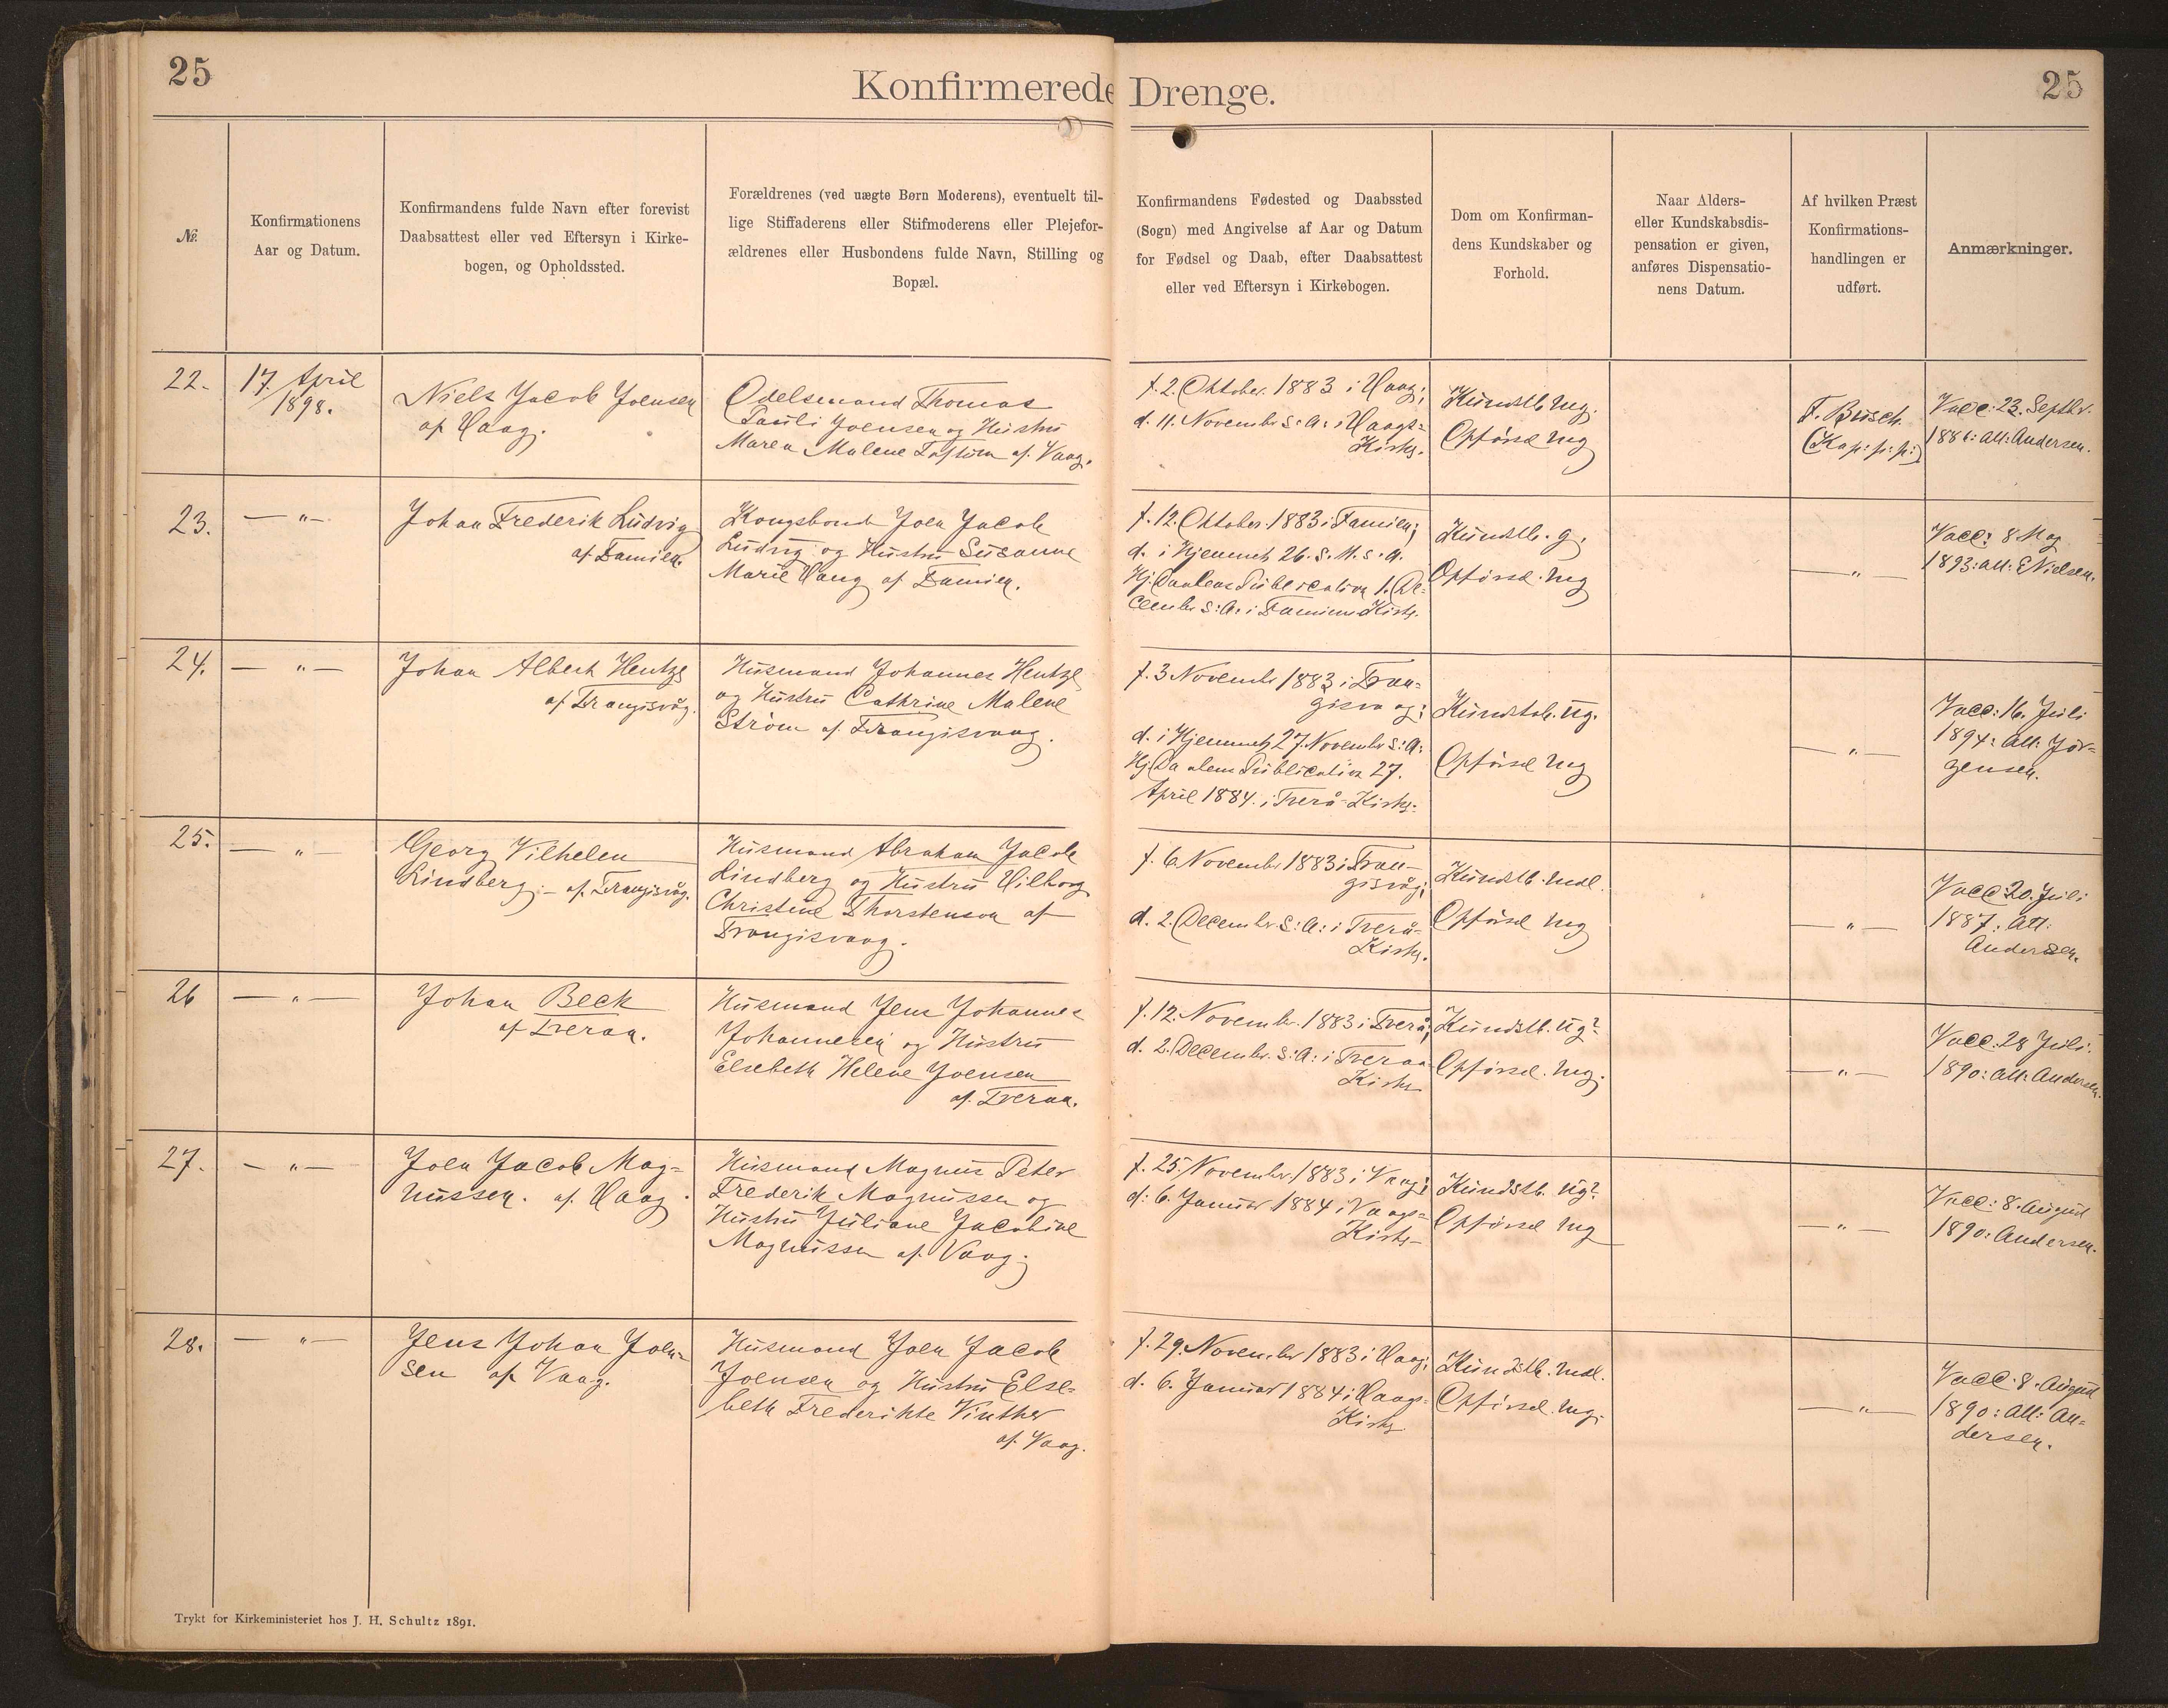 25
Konfirmerede Drenge.
25
№.
Konfirmationens
Aar og Datum.
Konfirmandens fulde Navn efter forevist
Daabsattest eller ved Eftersyn i Kirke-
bogen, og Opholdssted.
Forældrenes (ved uægte Børn Moderens), eventuelt til-
lige Stiffaderens eller Stifmoderens eller Plejefor-
ældrenes eller Husbondens fulde Navn, Stilling og
Bopæl.
Konfirmandens Fødested og Daabssted
(Sogn) med Angivelse af Aar og Datum
for Fødsel og Daab, efter Daabsattest
eller ved Eftersyn i Kirkebogen.
Dom om Konfirman-
dens Kundskaber og
Forhold.
Naar Alders-
eller Kundskabsdis-
pensation er given,
anføres Dispensatio-
nens Datum.
Af hvilken Præst
Konfirmations-
handlingen er
udført.
Anmærkninger.
22.
17. April
1898.
Niels Jacob Joensen
af Vaag.
Odelsmand Thomas
Pauli Joensen og Hustru
Maren Malene af Vaag.
f. 2. Oktober 1883 i Vaag;
d. 11. November s: A: i Vaags=
Kirke.
Kundsk. mg.
Opførsel mg
F. Busch.
(Kap: p: p:)
Vacc: 23. Septbr.
1886: att: Andersen.
23.
— " —
Johan Frederik Ludvig
af Famien.
Kongsbonde Joen Jacob
Ludvig og Hustru Susanne
Marie Vang af Famien.
f. 12. Oktober 1883 i Famien;
d. i Hjemmet 26. s. M. s. A.
Hj. Daabens Publication 1. De-
cember s: A: i Famiens Kirke.
Kundsk. g.
Opførsel. mg
— " —
Vacc: 8 Maj
1893: att: E Nielsen.
24.
— " —
Johan Albert Hentze
af Trangisvåg.
Husmand Johannes Hentze
og Hustru Cathrine Malene
Strøm af Trangisvaag.
f. 3 November 1883 i Tran=
gisvaag;
d. i Hjemmet 27. November s: A:
Hj. Daabens Publication 27.
April 1884. i Tverå-Kirke.
Kundskb. ug.
Opførsel mg
— " —
Vacc: 16. Juli
1894: att: Jør=
gensen.
25.
— " —
Georg Vilhelm
Lindberg. - af Trangisvåg.
Husmand Abraham Jacob
Lindberg og Hustru Vilborg
Christine Thorstenson af
Trangisvaag.
f. 6 November 1883 i Tran-
gisvåg;
d. 2. December s: A: i Tverå-
Kirke.
Kundsk. mdl.
Opførsel mg
— " —
Vacc: 20. Juli
1887: att:
Andersen.
26
— " —
Johan Beck
af Tveraa.
Husmand Jens Johannes
Johannesen og Hustru
Elsebeth Helene Joensen
af Tveraa.
f. 12. November. 1883 i Tverå;
d. 2. December. s: A: i Tveraa
Kirke
Kundsk. ug?
Opførsel. mg.
— " —
Vacc. 28 Juli.
1890: att: Andersen.
27.
— " —
Joen Jacob Mag=
nussen. af Vaag.
Husmand Magnus Peter
Frederik Magnussen og
Hustru Juliane Jacobine
Magnussen af Vaag.
f. 25. November 1883 i Vaag;
d: 6. Januar 1884 i Vaags=
Kirke-
Kundsk. ug?
Opførsel mg
— " —
Vacc: 8. August
1890: Andersen.
28.
— " —
Jens Johan Joen=
sen af Vaag.
Husmand Joen Jacob
Joensen og Hustru Else=
beth Frederikke Vinther
af Vaag.
f. 29. November 1883 i Vaag;
d. 6. Januar 1884 i Vaags-
Kirke
Kundsk. mdl.
Opførsel. mg.
— " —
Vacc. 8. August
1890: att: An=
dersen.
Trykt for Kirkeministeriet hos J. H. Schultz 1891.